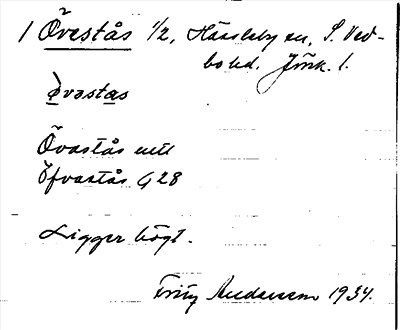 1 Övastås 1/2, Hässleby sn, S. Ved-
bo hd. Jönk. l.
øvastas
Övastås uttl
Öfvastås G 28
Ligger högt.
Fritz Andersson 1934.